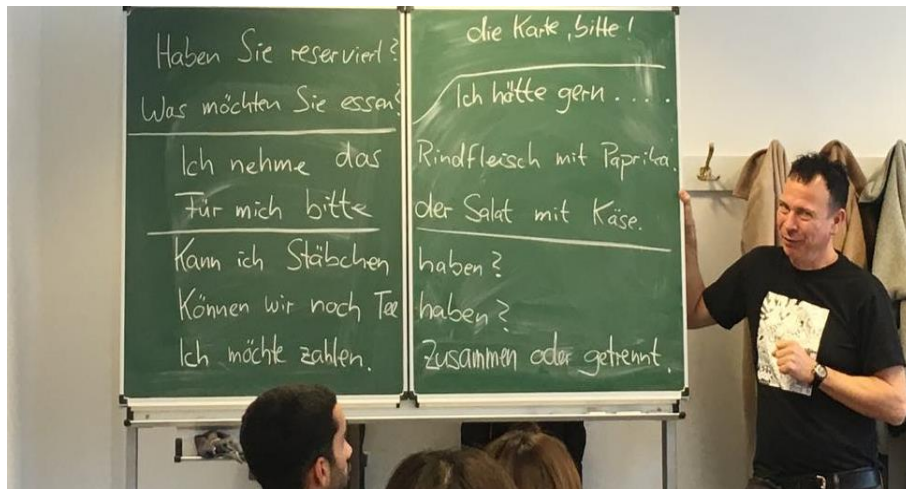 Haben Sie reserviert?
Was möchten Sie essen?
Ich nehme das
Für mich bitte
Kann ich Stäbchen
Können wir noch Tee
Ich möchte zahlen.
die Karte, bitte!
Ich hätte gern .....
Rindfleisch mit Paprika.
der Salat mit Käse.
haben?
haben?
Zusammen oder getrennt.